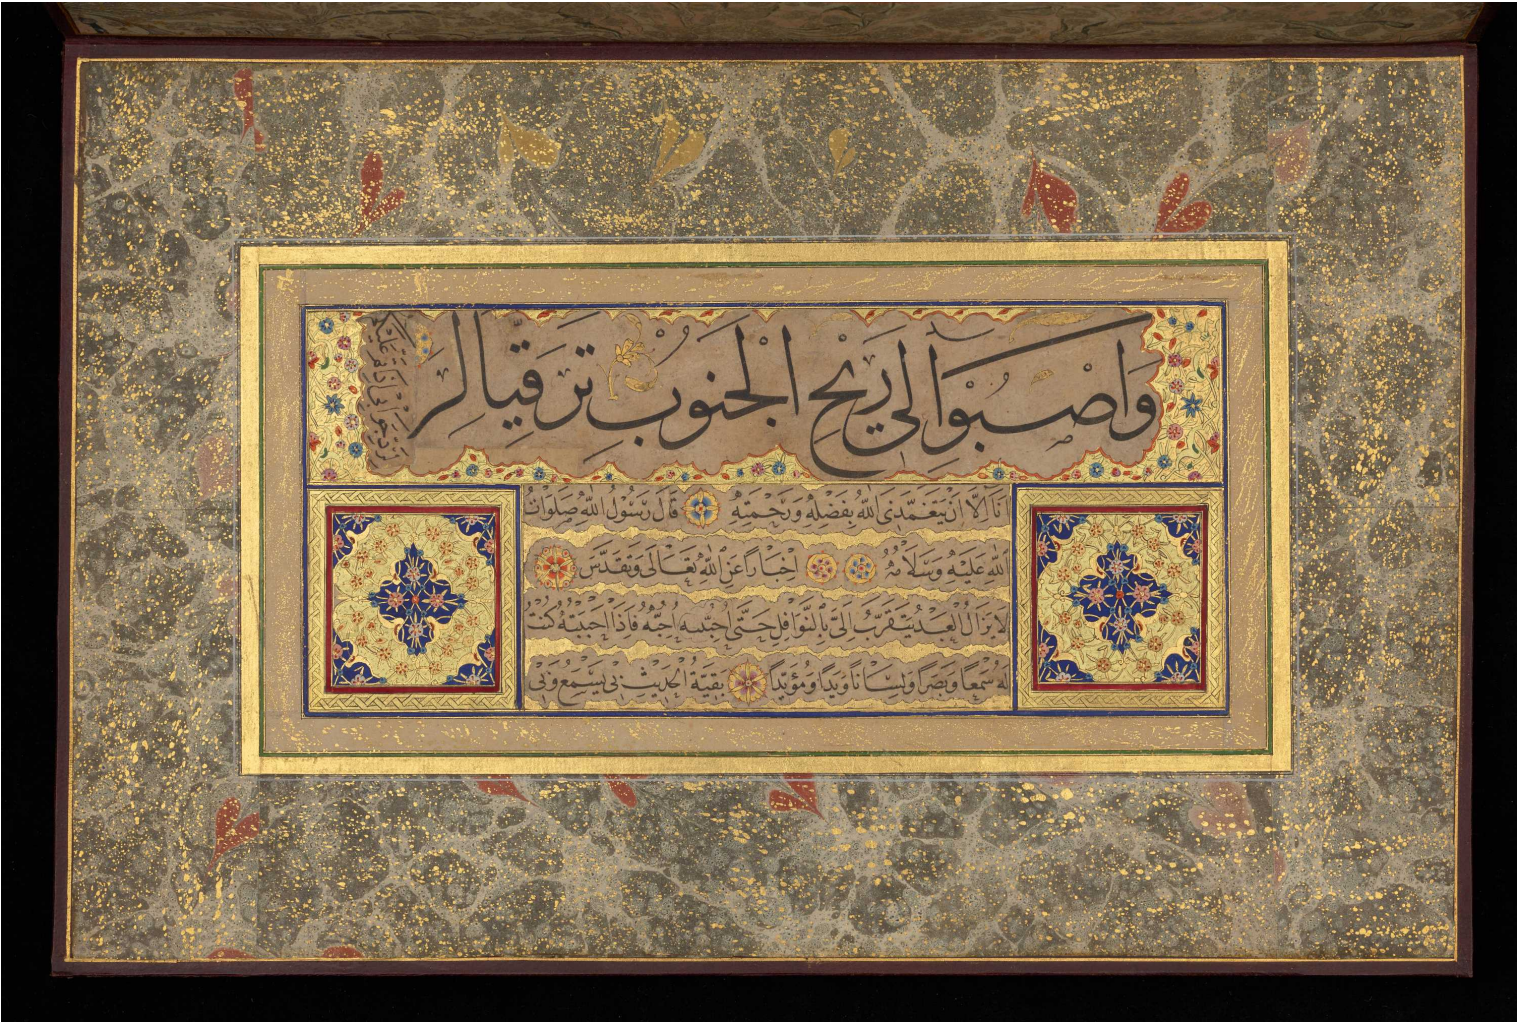 وَاَصْبُوا اِلٰى رِيحِ الْجَنُوبِ تَرَقِّيًا لِرَ
اَنَا اِلَّا اَنْ يَتَغَمَّدَنِيَ اللّٰهُ بِفَضْلِهِ وَرَحْمَتِهِ قَالَ رَسُولُ اللّٰهِ صَلَوَاتُ
اللّٰهِ عَلَيْهِ وَسَلَامُهُ اِخْبَارًا عَنِ اللّٰهِ تَعَالَى وَتَقَدَّسَ
لَا يَزَالُ الْعَبْدُ يَتَقَرَّبُ اِلَىَّ بِالنَّوَافِلِ حَتَّى اُحِبُّهُ فَاِذَا اَحْبَبْتُهُ كُنْتُ
لَهُ سَمْعًا وَبَصَرًا وَلِسَانًا وَيَدًا وَمُؤَيِّدًا بَقِيَّةُ الْحَدِيثِ بِى يَسْمَعُ وَبِى